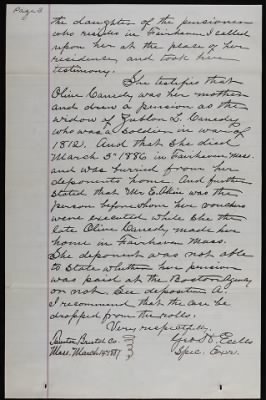 Page 3
the daughter of the pensioner
who resides in Fairhaven I called
upon her at the place of her
residence and took her
testimony.
She testifies that
Olive Canedy was her mother
and drew a pension as the
widow of L. Canedy
who was a Soldier in war of
1812. And that she died
March 5" 1886 in Fairhaven Mass.
and was buried from her
deponents home. And further
Stated that Mr E. Akin was the
person before whom her vouchers
were executed while She the
late Olive Canedy made her
home in Fairhaven Mass.
She deponent was not able
to State whether her pension
was paid at the Boston Agency
or not. See deposition A
I recommend that the case be
dropped from the rolls.
Very respectfully,
Taunton Bristol Co.
Mass. March 1887
Geo.
Spec. Exr.